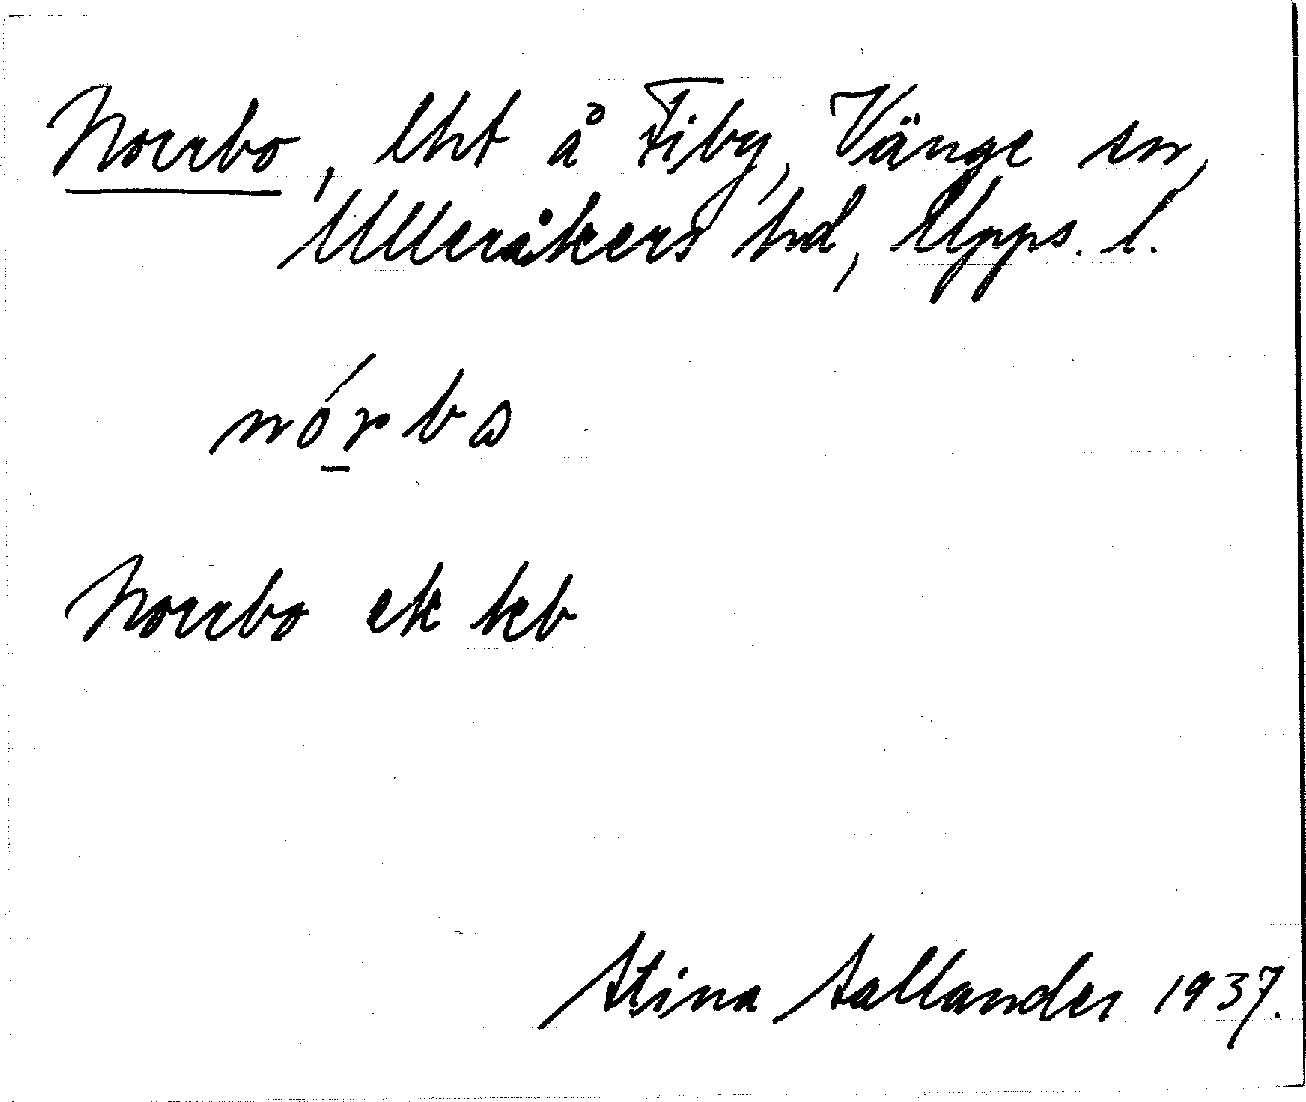 Norrbo, lht å Fiby, Vänge sn,
Ulleråkers hd, Upps. l.
Norrbo ek kb
Stina Sallander 1937.